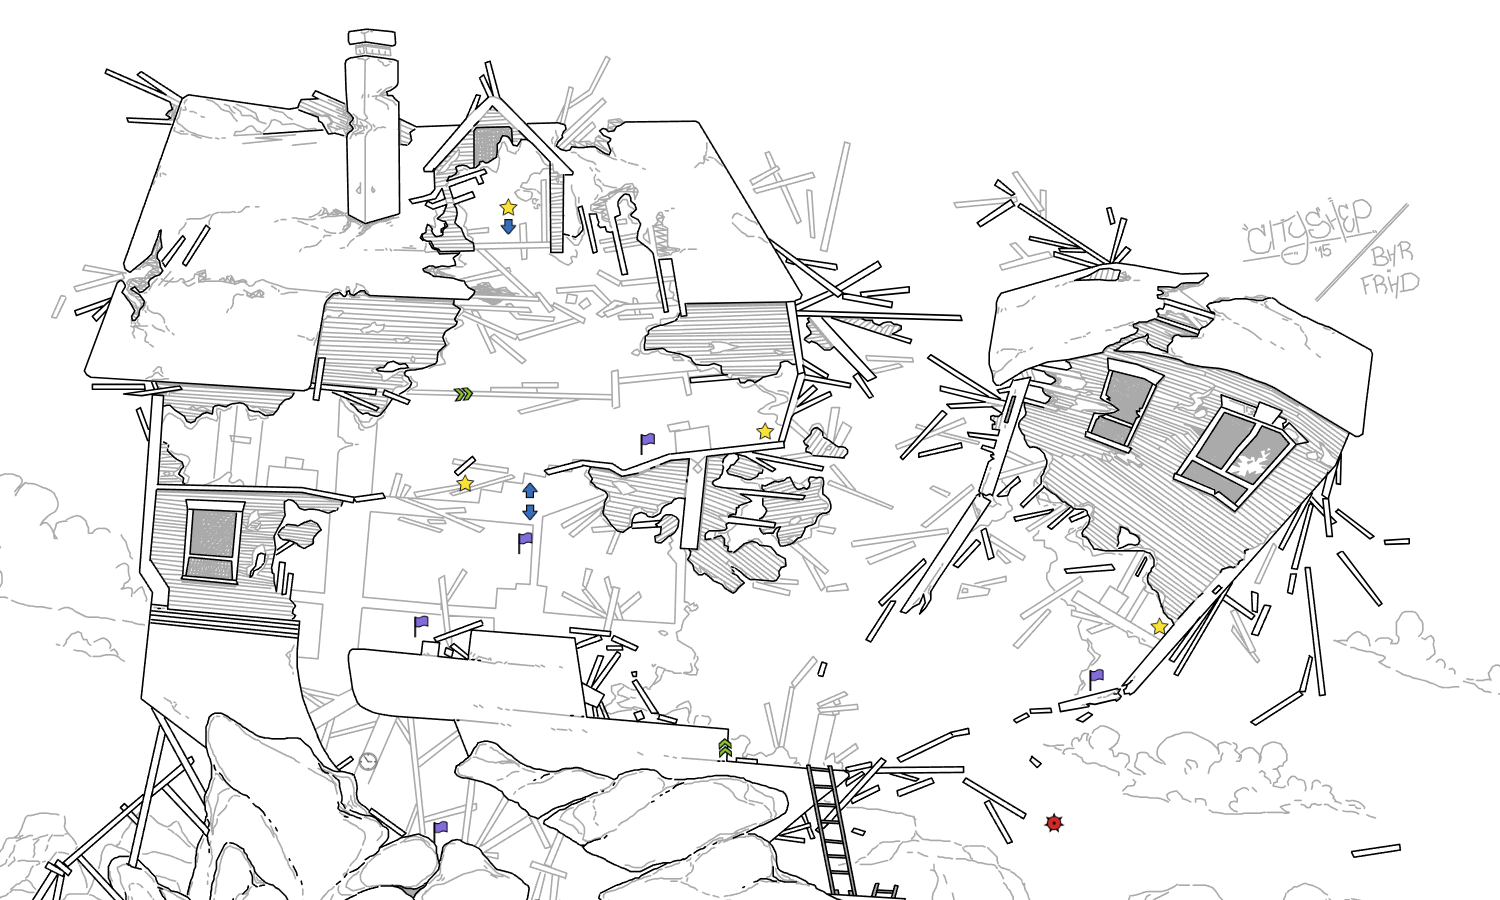 CITYSHEP
'45
BHR
FRHD